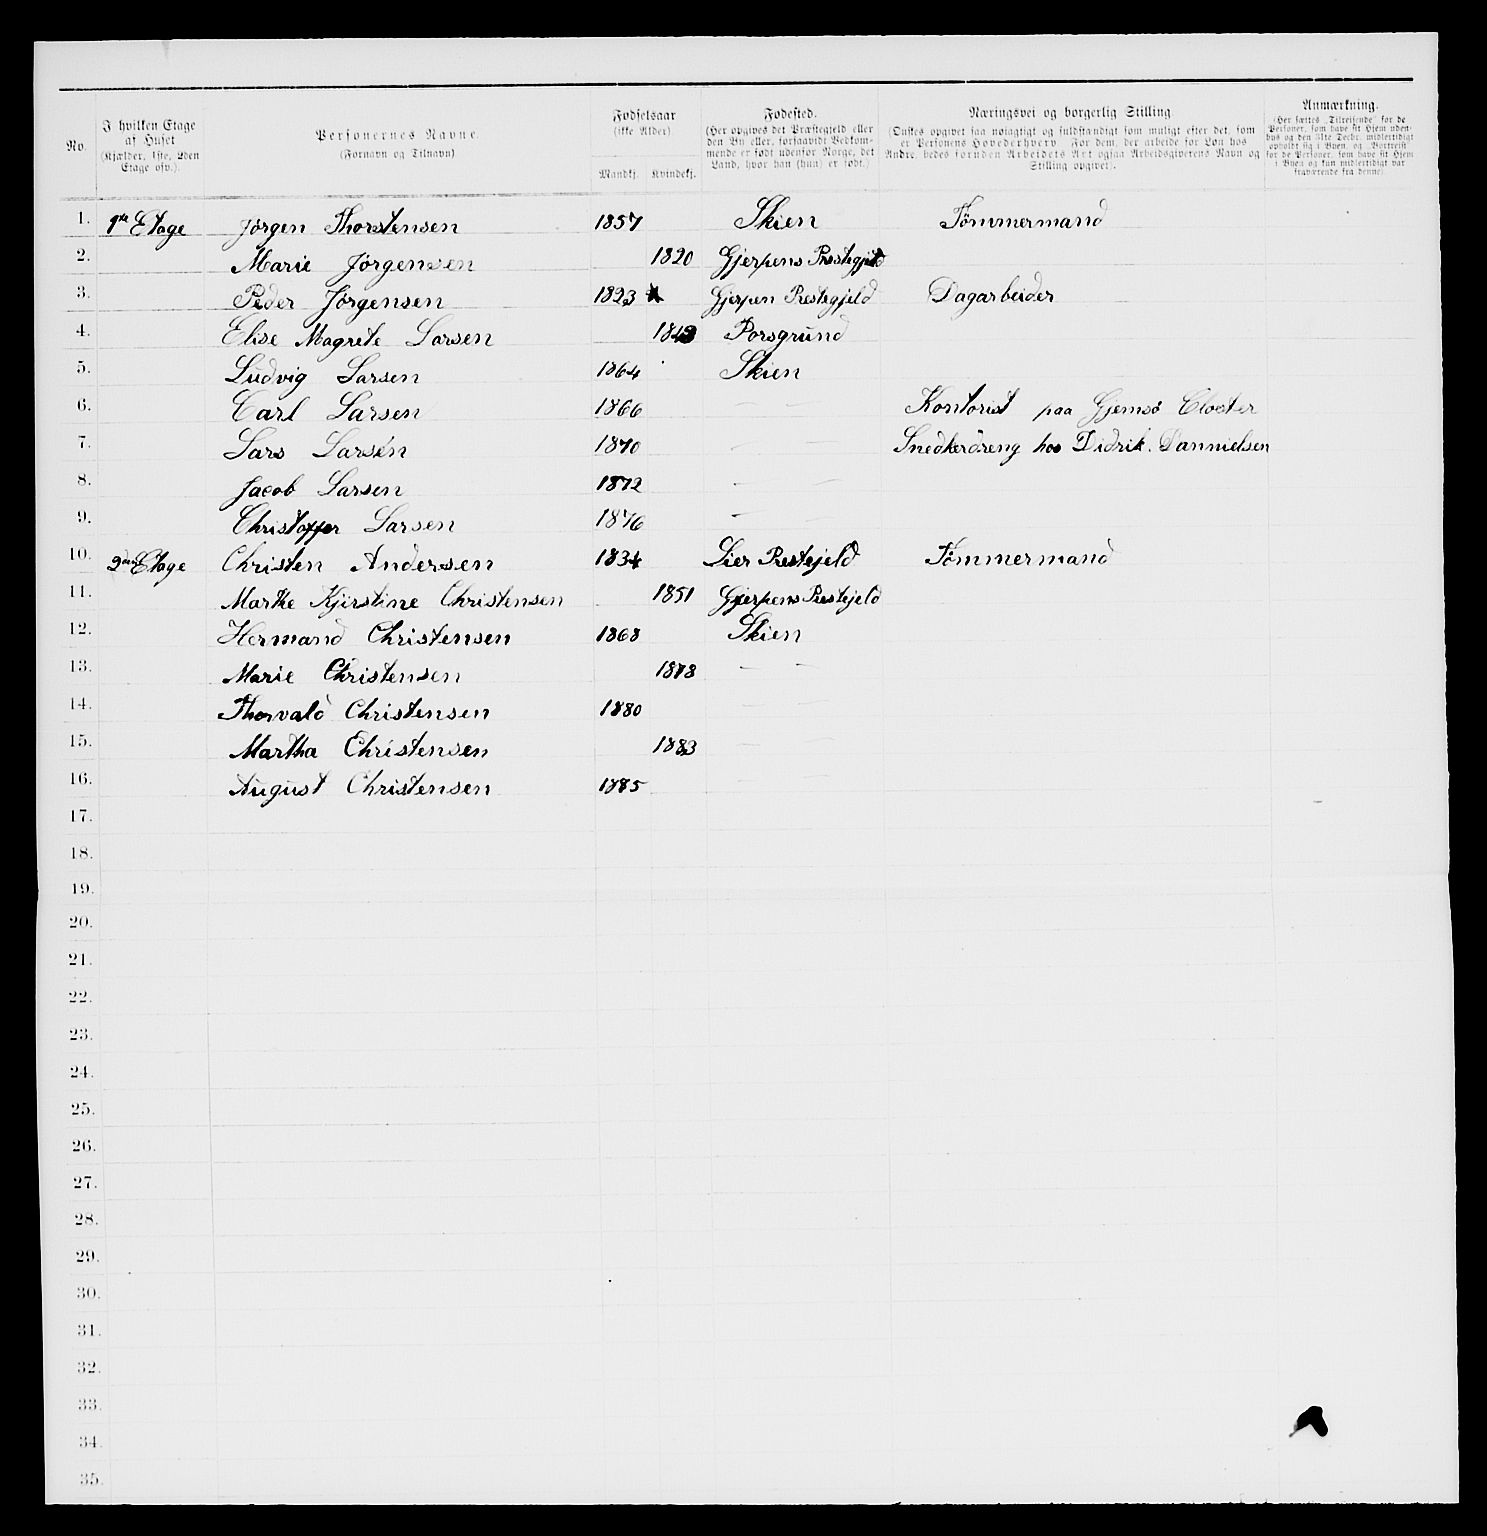 No.
I hvilken Etage af Huset (Kjælder, 1ste, 2den Etage osv.).
Personernes Navne. (Fornavn og Tilnavn)
Fødselsaar (ikke Alder)
Mandkj. Kvindekj.
Fødested. (Her opgives det Præstegjeld eller den By eller, forsaavidt Vedkommende er født udenfor Norge, det Land, hvor han (hun) er født.)
Næringsvei og borgerlig Stilling (Ønskes opgivet saa nøiagtigt og fuldstændigt som muligt efter det, som er Personens Hovederhverv. For dem, der arbeide for Løn hos Andre, bedes foruden Arbeidets Art ogsaa Arbeidsgiverens Navn og Stilling opgivet).
Anmærkning. (Her sættes „Tilreisende" for de Personer, som have sit Hjem udenbys og den 31te Decbr. midlertidigt opholdt sig i Byen, og „Bortreist" for de Personer, som have sit Hjem i Byen og kun midlertidigt var fraværende fra denne).
1. 1ste Etage Jørgen Thorstensen 1857 Skien Tømmermand
2. Marie Jørgensen 1820 Gjerpens Prestegjeld
3. Peder Jørgensen 1823 Gjerpen Prestegjeld Dagarbeider
4. Elise Magrete Larsen Porsgrund
5. Ludvig Larsen 1864 Skien
6. Carl Larsen 1866 — — Kontorist paa Gjemsø Closter
7. Lars Larsen 1870 — — Snedkerdreng hos Didrik. Dannielsen
8. Jacob Larsen 1872 — —
9. Christoffer Larsen 1876 — —
10. 2den Etage Christen Andersen 1834 Lier Prestejeld Tømmermand
11. Marthe Kjirstine Christensen 1851 Gjerpens Prestejeld
12. Hermand Christensen 1868 Skien
13. Marie Christensen 1878 — —
14. Thorvald Christensen 1880 — —
15. Martha Christensen 1883 — —
16. August Christensen 1885 — —
17.
18.
19.
20.
21.
22.
23.
24.
25.
26.
27.
28.
29.
30.
31.
32.
33.
34.
35.